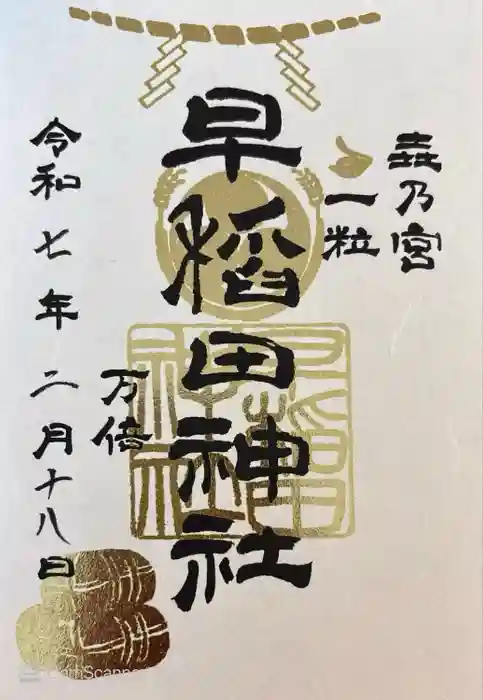 乃宮
一粒
早稻田神社
万倍
令和七年二月十八日
CamScanner